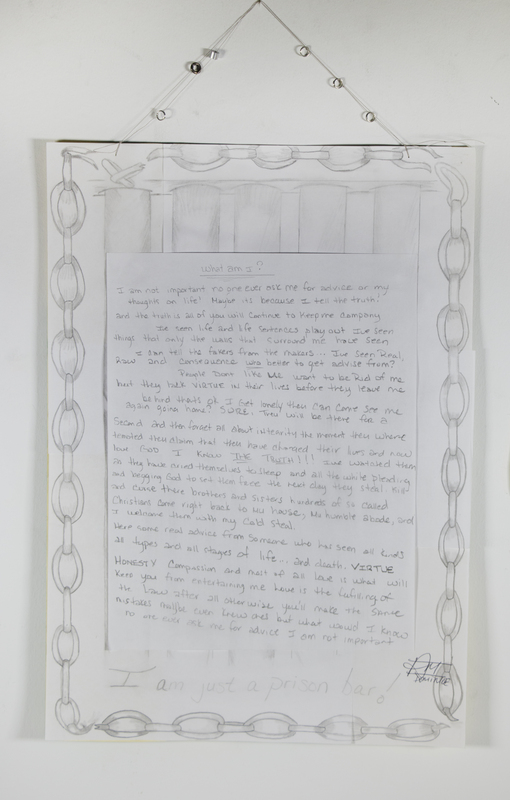 What am I?
I am not important no one ever ask me for advice or my
thoughts on life! Maybe its because I tell the truth!
and the truth is 50 of you will continue to keep me company
I've seen life and life sentences play out I've seen
things that only the walls that surround me have seen
I can tell the fakers from the makers... I've seen Real,
Raw and consequence who better to get advise from?
People Don't like me want to be Rid of me
but they lack VIRTUE in their lives before they leave me
behind that's ok I get lonely they can come see me
again going home? SURE. They will be there for a
second and then forget all about integrity the moment they where
tempted they claim that they have changed their lives and now
have GOD I KNOW THE TRUTH!!! I've watched them
as they have cried themselves to sleep and all the while pleading
and begging God to set them free the next day they steal Kick
and curse there brothers and sisters hundreds of so called
Christians come right back to my house, My humble abode, and
I welcome them with my Cold Steal.
Here some real advice from someone who has seen all kinds
all types and all stages of life... and death. VIRTUE
HONESTY Compassion and most of all love is what will
Keep you from entertaining me love is the fulfilling of
the Law after all otherwise you'll make the same
mistakes maybe even new ones but what would I know
no one ever ask me for advice I am not important
I am just a prison bar!